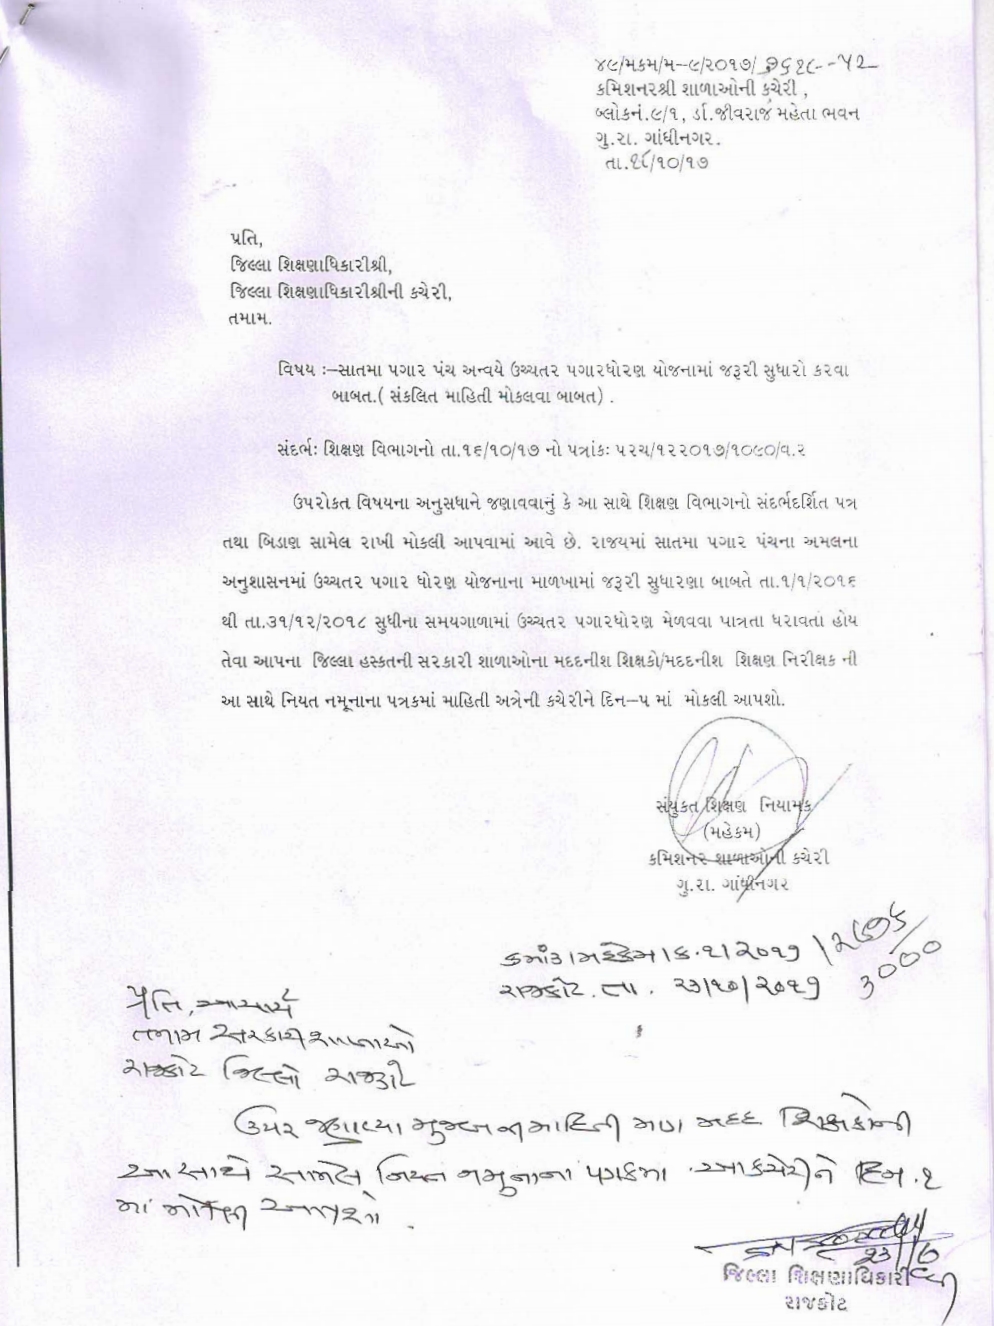 ૪૯/મકમ/મ--૯/૨૦૧૭/ ૭૬૧૮--૫૨
કમિશનરશ્રી શાળાઓની કચેરી ,
બ્લોકનં.૯/૧, ર્ડા.જીવરાજ મહેતા ભવન
ગુ.રા. ગાંધીનગર.
તા.૧૮/૧૦/૧૭
પ્રતિ,
જિલ્લા શિક્ષણાધિકારીશ્રી,
જિલ્લા શિક્ષણાધિકારીશ્રીની કચેરી,
તમામ.
વિષય :--સાતમા પગાર પંચ અન્વયે ઉચ્ચતર પગારધોરણ યોજનામાં જરૂરી સુધારો કરવા
બાબત.( સંકલિત માહિતી મોકલવા બાબત) .
સંદર્ભ: શિક્ષણ વિભાગનો તા.૧૬/૧૦/૧૭ નો પત્રાંક: પરચ/૧૨૨૦૧૭/૧૦૯૦/વ.૨
ઉપરોકત વિષયના અનુસધાને જણાવવાનું કે આ સાથે શિક્ષણ વિભાગનો સંદર્ભદર્શિત પત્ર
તથા બિડાણ સામેલ રાખી મોકલી આપવામાં આવે છે. રાજયમાં સાતમા પગાર પંચના અમલના
અનુશાસનમાં ઉચ્ચતર પગાર ધોરણ યોજનાના માળખામાં જરૂરી સુધારણા બાબતે તા.૧/૧/૨૦૧૬
થી તા.૩૧/૧૨/૨૦૧૮ સુધીના સમયગાળામાં ઉચ્ચતર પગારધોરણ મેળવવા પાત્રતા ધરાવતાં હોય
તેવા આપના જિલ્લા હસ્કતની સરકારી શાળાઓના મદદનીશ શિક્ષકો/મદદનીશ શિક્ષણ નિરીક્ષક ની
આ સાથે નિયત નમૂનાના પત્રકમાં માહિતી અત્રેની કચેરીને દિન--૫ માં મોકલી આપશો.
સંયુકત શિક્ષણ નિયામક
(મહેકમ)
કમિશનર શાળાઓની કચેરી
ગુ.રા. ગાંધીનગર
ક્રમાંક/મહેકમ/ક.૧/૨૦૧૭/
૩૦૦૦
રાજકોટ. તા. ૨૩/૧૦/૨૦૧૭
પ્રતિ, આચાર્ય
તમામ સરકારી શાળાઓ
રાજકોટ જિલ્લો રાજકોટ
ઉપર જણાવ્યા મુજબની માહિતી મદદ શિક્ષકોની
આ સાથે સામેલ નિયત નમુનાનાં પત્રકમાં આ કચેરીને દિન.૧
માં મોકલી આપશો.
જિલ્લા શિક્ષણાધિકારી
રાજકોટ